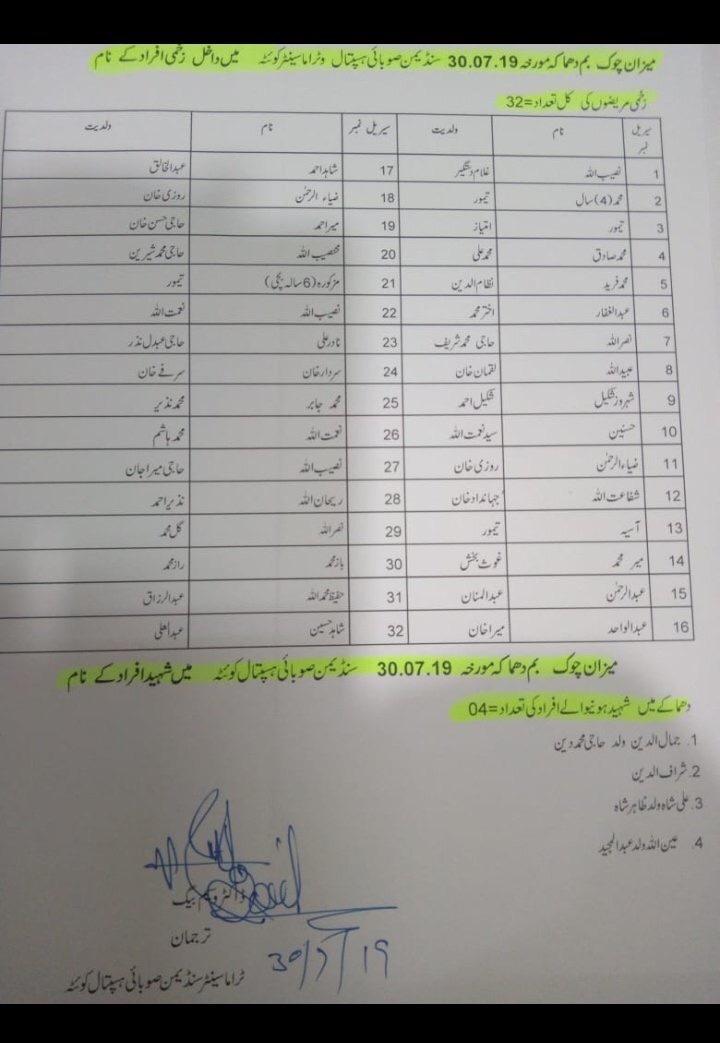 میزان چوک بم دھماکہ مورخہ 30.07.19 سنڈیمن صوبائی ہسپتال وٹراما سینٹر کوئٹہ میں داخل زخمی افراد کے نام
زخمی مریضوں کی کل تعداد=32
سیریل نمبر نام ولدیت سیریل نمبر نام ولدیت
1 نصیب اللہ غلام دستگیر 17 شاہد احمد عبدالخالق
2 محمد (4) سال تیمور 18 ضیاء الرحمٰن روزی خان
3 تیمور امتیاز 19 میر احمد حاجی حسن خان
4 محمد صادق محمد علی 20 محصیب اللہ حاجی محمد شیرین
5 محمد فرید نظام الدین 21 مزکورہ (6 سالہ بچی) تیمور
6 عبدالغفار اختر محمد 22 نصیب اللہ نعمت اللہ
7 نصر اللہ حاجی محمد شریف 23 نادر علی حاجی عبدل نذر
8 عبید اللہ لقمان خان 24 سردار خان سرفے خان
9 شہروز شکیل شکیل احمد 25 محمد جابر محمد نذیر
10 حسنین سید نعمت اللہ 26 نعمت اللہ محمد ہاشم
11 ضیاءالرحمٰن روزی خان 27 نصیب اللہ حاجی میرا جان
12 شفاعت اللہ جہانداد خان 28 ریحان اللہ نذیر احمد
13 آسیہ تیمور 29 نصر اللہ گل محمد
14 میر محمد غوث بخش 30 باز محمد راز محمد
15 عبدالرحمٰن عبدالمنان 31 حفیظ محمد اللہ عبدالرزاق
16 عبدالواحد میرا خان 32 شاہد حسین عبدالعلی
میزان چوک بم دھماکہ مورخہ 30.07.19 سنڈیمن صوبائی ہسپتال کوئٹہ میں شہید افراد کے نام
دھماکے میں شہید ہونیوالے افراد کی تعداد=04
1. جمال الدین ولد حاجی محمد دین
2. شراف الدین
3. علی شاہ ولد ظاہر شاہ
4. عین اللہ ولد عبدالمجید
ڈاکٹر وسیم بیگ
ترجمان
30/7/19
ٹراما سینٹر سنڈیمن صوبائی ہسپتال کوئٹہ